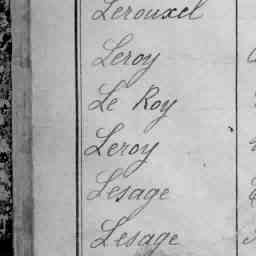 Lerouxel
Leroy
Le Roy
Leroy
Lesage
Lesage